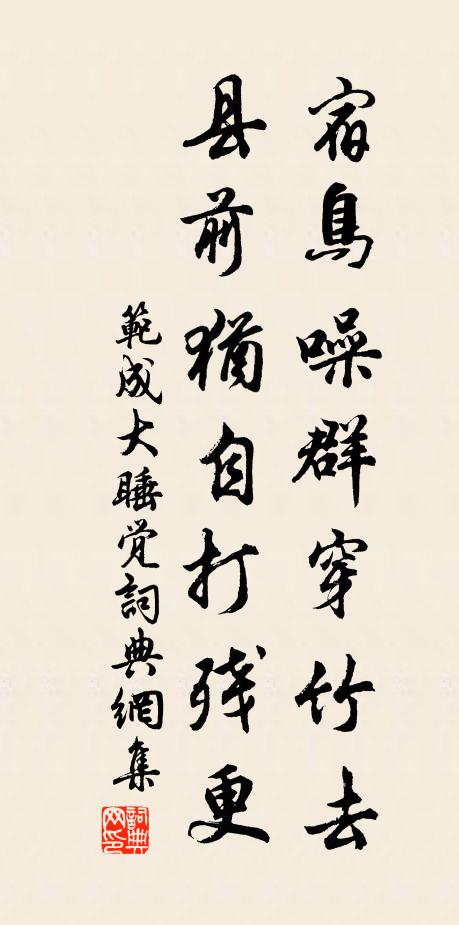 宿鳥噪群穿竹去
县前猶自打残更
範成大睡觉詞典網集
詞典
网印